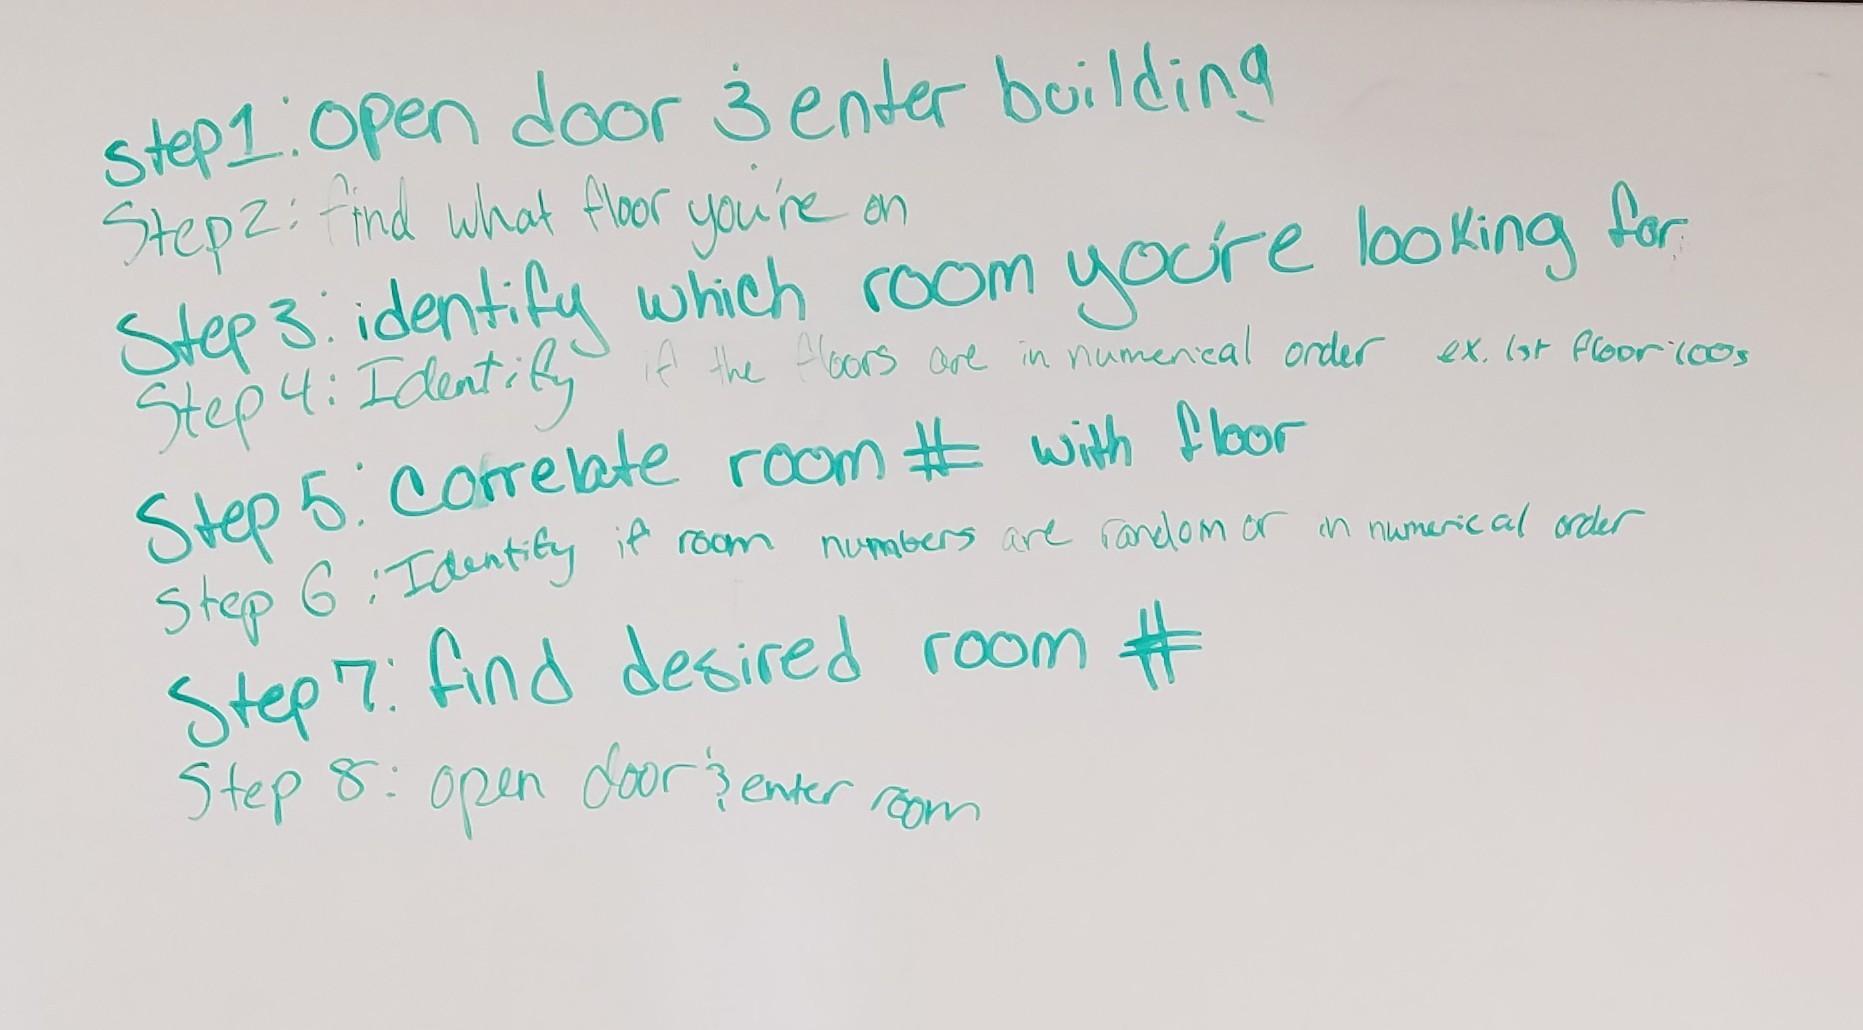 step1: open door & enter building
Step2: find what floor you're on
Step 3: identify which room you're looking for
Step 4: Identify if the floors are in numerical order ex. 1st floor:100s
Step 5: correlate room # with floor
Step 6: Identify if room numbers are random or in numerical order
Step 7: find desired room #
Step 8: open door & enter room